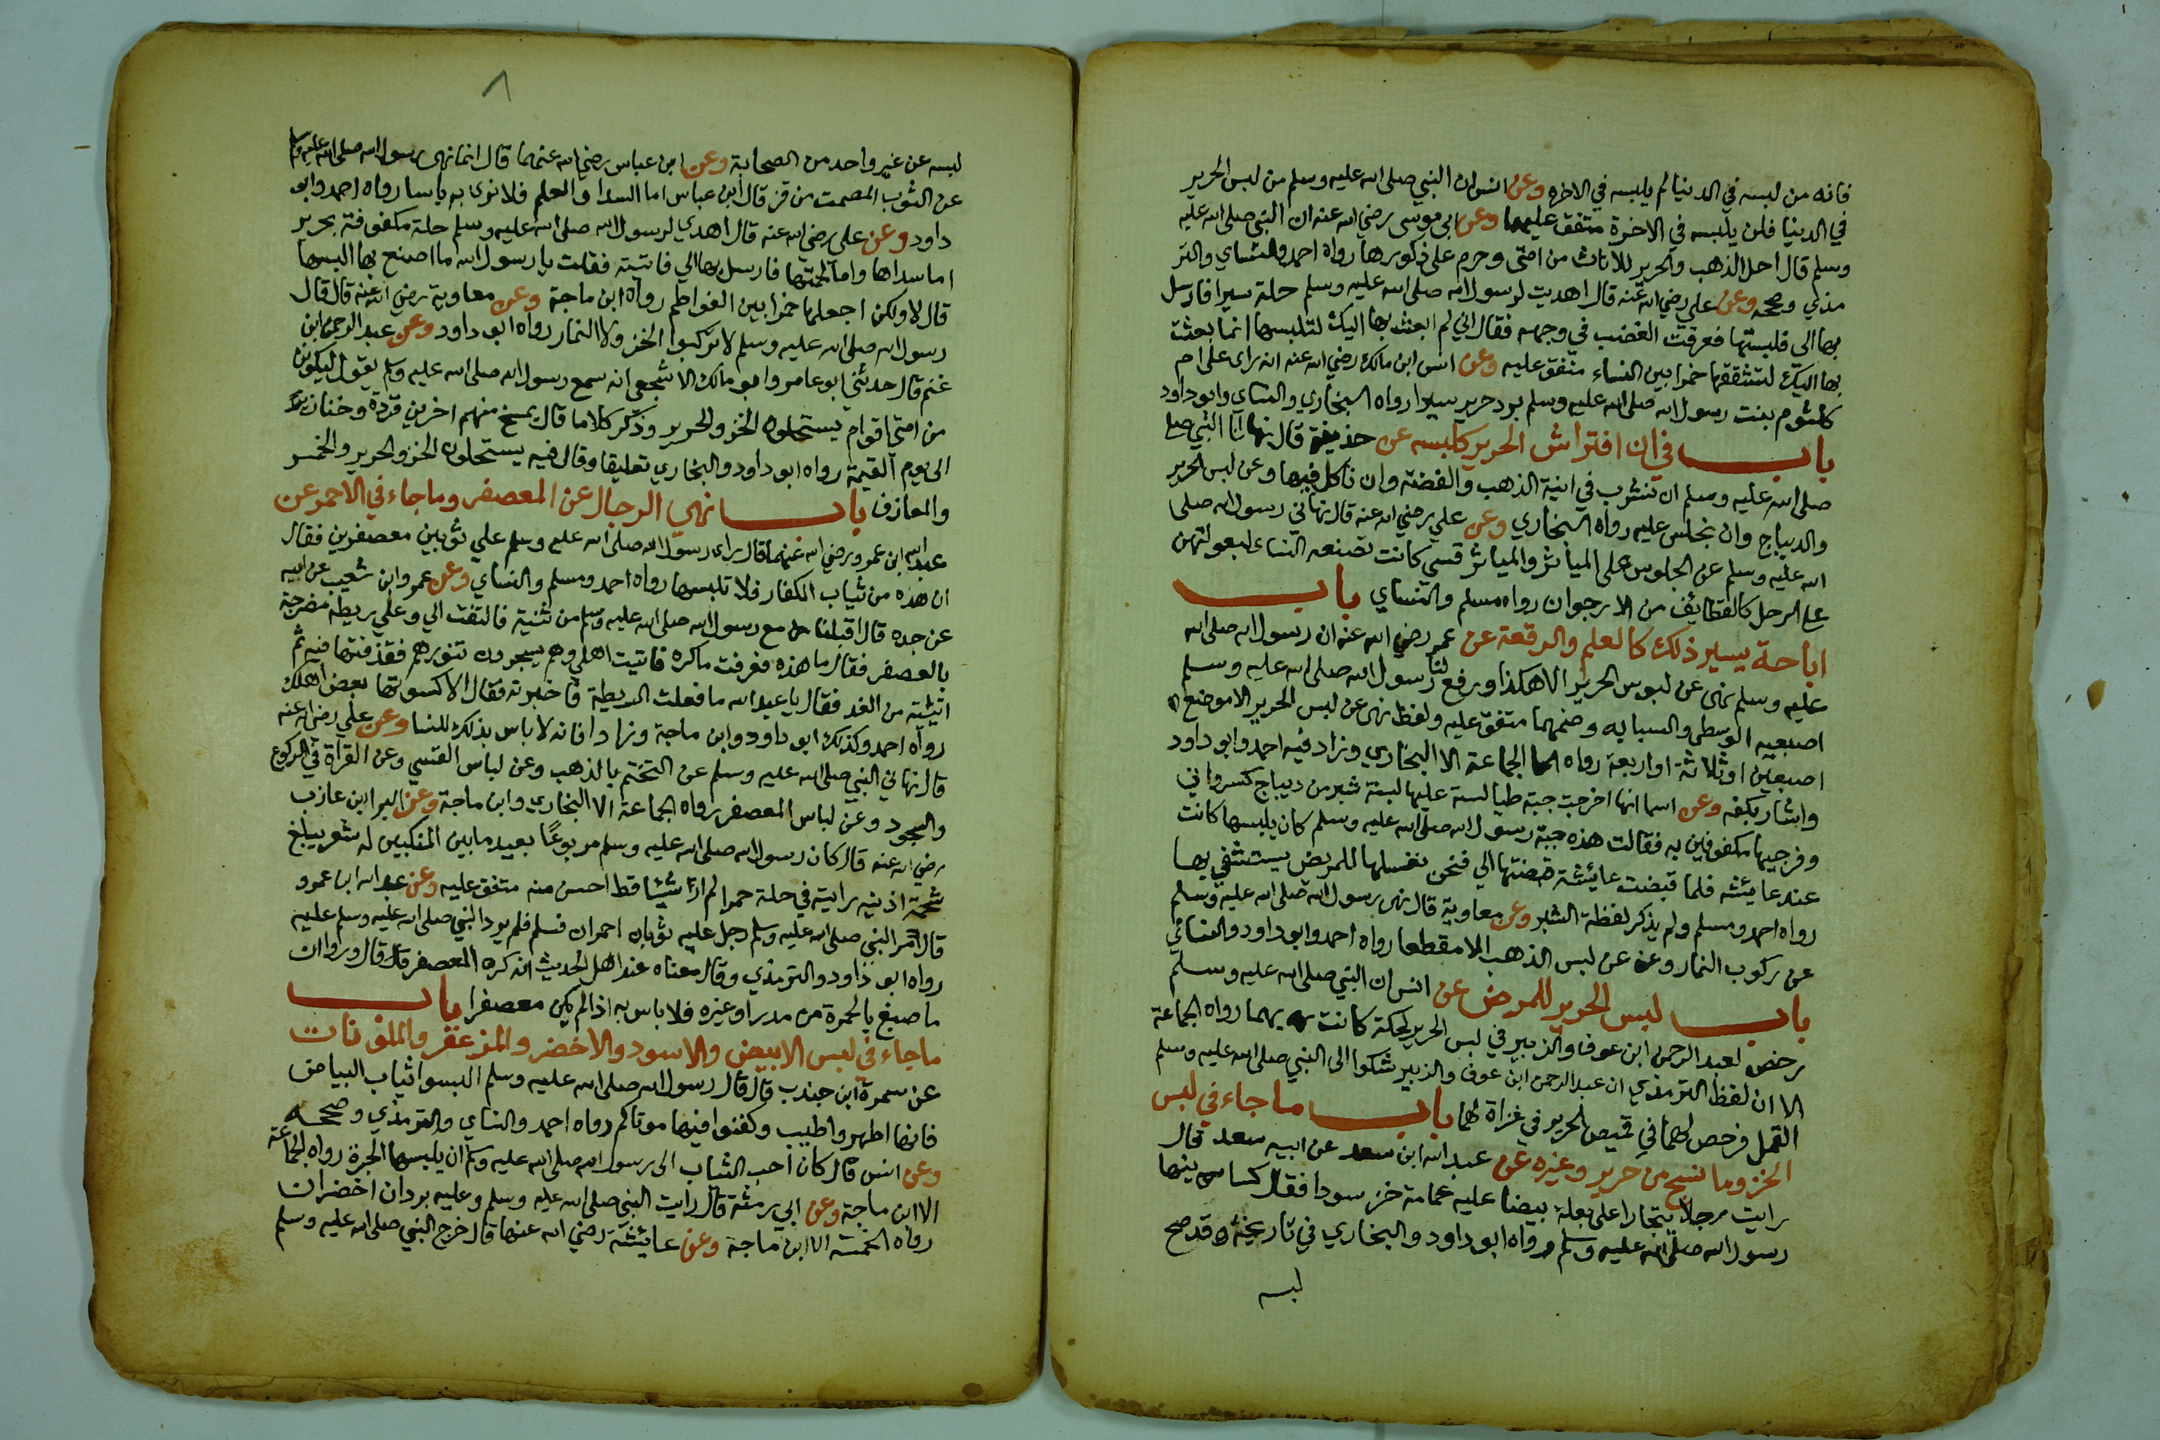 فانه من لبسه في الدنيا لم يلبسه في الاخرة وعن انس ان النبي صلى الله عليه وسلم من لبس الحرير
في الدنيا فلن يلبسه في الاخرة متفق عليهما وعن ابي موسى رضي الله عنه ان النبي صلى الله عليه
وسلم قال احل الذهب والحرير للاناث من امتي وحرم على ذكورها رواه احمد والنساي والتر
مذي وصححه وعن علي رضي الله عنه قال اهديت لرسول الله صلى الله عليه وسلم حلة سيرا فارسل
بها الي فلبستها فعرفت الغضب في وجهه فقال اني لم ابعث بها اليك لتلبسها انما بعثت
بها اليك لتشققها خمرا بين النساء متفق عليه وعن انس ابن مالك رضي الله عنه انه راى على ام
كلثوم بنت رسول الله صلى الله عليه وسلم برد حرير سيرا رواه البخاري والنساي وابو داود
باب في ان افتراش الحرير كلبسه عن حذيفة قال نهانا النبي صلى
صلى الله عليه وسلم ان نشرب في انية الذهب والفضة وان ناكل فيها وعن لبس الحرير
والديباج وان نجلس عليه رواه البخاري وعن علي رضي الله عنه قال نهاني رسول الله صلى
الله عليه وسلم عن الجلوس على المياثر والمياثر قسي كانت تصنعه النساء لبعولتهن
على الرحل كالقطايف من الارجوان رواه مسلم والنساي باب
اباحة يسير ذلك كالعلم والرقعة عن عمر رضي الله عنه ان رسول الله صلى الله
عليه وسلم نهى عن لبوس الحرير الا هكذا ورفع لنا رسول الله صلى الله عليه وسلم
اصبعيه الوسطى والسبابه وضمهما متفق عليه ولفظ نهى عن لبس الحرير الا موضع
اصبعين او ثلاثة او اربعة رواه الجماعة الا البخاري وزاد فيه احمد وابو داود
واشار بكفه وعن اسما انها اخرجت جبة طيالسة عليها لبنة شبر من ديباج كسرواني
وفرجيها مكفوفين به فقالت هذه جبة رسول الله صلى الله عليه وسلم كان يلبسها كانت
عند عايشه فلما قبضت عايشة قبضتها الي فنحن نغسلها للمريض يستشفي بها
رواه احمد ومسلم ولم يذكر لفظة الشبر وعن معاوية قال نهى رسول الله صلى الله عليه وسلم
عن ركوب النمار وعن لبس الذهب الا مقطعا رواه احمد وابو داود والنساي
باب لبس الحرير للمرض عن انس ان النبي صلى الله عليه وسلم
رخص لعبد الرحمن ابن عوف والزبير في لبس الحرير لحكة كانت بهما رواه الجماعة
الا ان لفظ الترمذي ان عبد الرحمن ابن عوف والزبير شكوا الى النبي صلى الله عليه وسلم
القمل فرخص لهما في قميص الحرير في غزاة لهما باب ما جاء في لبس
الخز وما نسج من حرير وغيره عن عبد الله ابن سعد عن ابيه سعد قال
رايت رجلا ببخارا على بغلة بيضا عليه عمامة خز سودا فقال كسانيها
رسول الله صلى الله عليه وسلم رواه ابو داود والبخاري في تاريخه وقد صح
لبسه
٨
لبسه عن غير واحد من الصحابة وعن ابن عباس رضي الله عنهما قال انما نهى رسول الله صلى الله عليه وسلم
عن الثوب المصمت من قز قال ابن عباس اما السدا والعلم فلا نرى به باسا رواه احمد وابو
داود وعن علي رضي الله عنه قال اهدي لرسول الله صلى الله عليه وسلم حلة مكفوفة بحرير
اما سداها واما لحمتها فارسل بها الي فاتيته فقلت يا رسول الله ما اصنع بها البسها
قال لا ولكن اجعلها خمرا بين الفواطم رواه ابن ماجة وعن معاوية رضي الله عنه قال قال
رسول الله صلى الله عليه وسلم لا تركبوا الخز ولا النمار رواه ابو داود وعن عبد الرحمن ابن
غنم قال حدثني ابو عامر وابو مالك الاشجعي انه سمع رسول الله صلى الله عليه وسلم يقول ليكونن
من امتي اقوام يستحلون الخز والحرير وذكر كلاما قال يمسخ منهم اخرين قردة وخنازير
الى يوم القيمة رواه ابو داود والبخاري تعليقا وقال فيه يستحلون الخز والحرير والخمر
والمعازف باب نهي الرجال عن المعصفر وما جاء في الاحمر عن
عبد الله ابن عمرو رضي الله عنهما قال راى رسول الله صلى الله عليه وسلم علي ثوبين معصفرين فقال
ان هذه من ثياب الكفار فلا تلبسها رواه احمد ومسلم والنساي وعن عمرو ابن شعيب عن ابيه
عن جده قال اقبلنا مع رسول الله صلى الله عليه وسلم من ثنية فالتفت الي وعلي ريطة مضرجة
بالعصفر فقال ما هذه فعرفت ما كره فاتيت اهلي وهم يسجرون تنورهم فقذفتها فيه ثم
اتيته من الغد فقال يا عبد الله ما فعلت الريطة فاخبرته فقال الا كسوتها بعض اهلك
رواه احمد وكذلك ابو داود وابن ماجة وزادا فانه لا باس بذلك للنسا وعن علي رضي الله عنه
قال نهاني النبي صلى الله عليه وسلم عن التختم بالذهب وعن لباس القسي وعن القراة في الركوع
والسجود وعن لباس المعصفر رواه الجماعة الا البخاري وابن ماجة وعن البرا ابن عازب
رضي الله عنه قال كان رسول الله صلى الله عليه وسلم مربوعا بعيد ما بين المنكبين له شعر يبلغ
شحمة اذنيه رايته في حلة حمرا لم ار شيئا قط احسن منه متفق عليه وعن عبد الله ابن عمرو
قال مر النبي صلى الله عليه وسلم رجل عليه ثوبان احمران فسلم فلم يرد النبي صلى الله عليه وسلم عليه
رواه ابو داود والترمذي وقال معناه عند اهل الحديث انه كره المعصفر قال وراوا ان
ما صبغ بالحمرة من مدر او غيره فلا باس به اذا لم يكن معصفرا باب
ما جاء في لبس الابيض والاسود والاخضر والمزعفر والملونات
عن سمرة ابن جندب قال قال رسول الله صلى الله عليه وسلم البسوا ثياب البياض
فانها اطهر واطيب وكفنوا فيها موتاكم رواه احمد والنساي والترمذي وصححه
وعن انس قال كان احب الثياب الى رسول الله صلى الله عليه وسلم ان يلبسها الحبرة رواه الجماعة
الا ابن ماجة وعن ابي رمثة قال رايت النبي صلى الله عليه وسلم وعليه بردان اخضران
رواه الخمسة الا ابن ماجة وعن عائشة رضي الله عنها قال خرج النبي صلى الله عليه وسلم